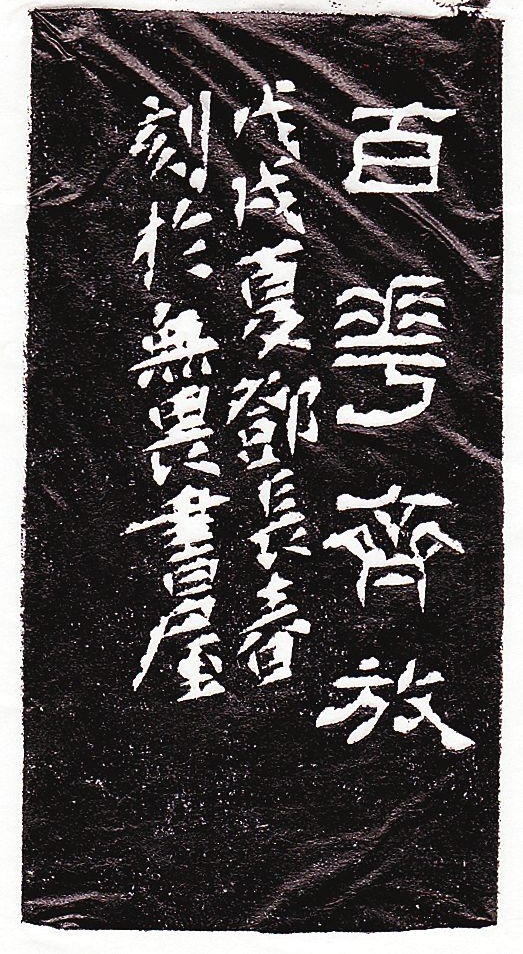 百花齊放
戊戌夏鄧長春
刻於無畏書屋